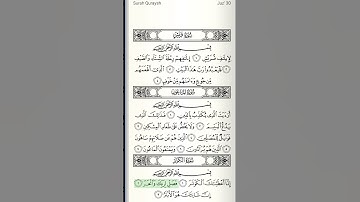 Surah Quraysh
Juz' 30
سُورَةُ قُرَيْشٍ
بِسْمِ ٱللَّهِ ٱلرَّحْمَٰنِ ٱلرَّحِيمِ
لِإِيلَٰفِ قُرَيْشٍ ١ إِۦلَٰفِهِمْ رِحْلَةَ ٱلشِّتَآءِ وَٱلصَّيْفِ
٢ فَلْيَعْبُدُوا۟ رَبَّ هَٰذَا ٱلْبَيْتِ ٣ ٱلَّذِىٓ أَطْعَمَهُم
مِّن جُوعٍ وَءَامَنَهُم مِّنْ خَوْفٍۭ ٤
سُورَةُ ٱلْمَاعُونِ
بِسْمِ ٱللَّهِ ٱلرَّحْمَٰنِ ٱلرَّحِيمِ
أَرَءَيْتَ ٱلَّذِى يُكَذِّبُ بِٱلدِّينِ ١ فَذَٰلِكَ ٱلَّذِى
يَدُعُّ ٱلْيَتِيمَ ٢ وَلَا يَحُضُّ عَلَىٰ طَعَامِ ٱلْمِسْكِينِ ٣
فَوَيْلٌ لِّلْمُصَلِّينَ ٤ ٱلَّذِينَ هُمْ عَن صَلَاتِهِمْ سَاهُونَ
٥ ٱلَّذِينَ هُمْ يُرَآءُونَ ٦ وَيَمْنَعُونَ ٱلْمَاعُونَ ٧
سُورَةُ ٱلْكَوْثَرِ
بِسْمِ ٱللَّهِ ٱلرَّحْمَٰنِ ٱلرَّحِيمِ
إِنَّآ أَعْطَيْنَٰكَ ٱلْكَوْثَرَ ١ فَصَلِّ لِرَبِّكَ وَٱنْحَرْ ٢
إِنَّ شَانِئَكَ هُوَ ٱلْأَبْتَرُ ٣